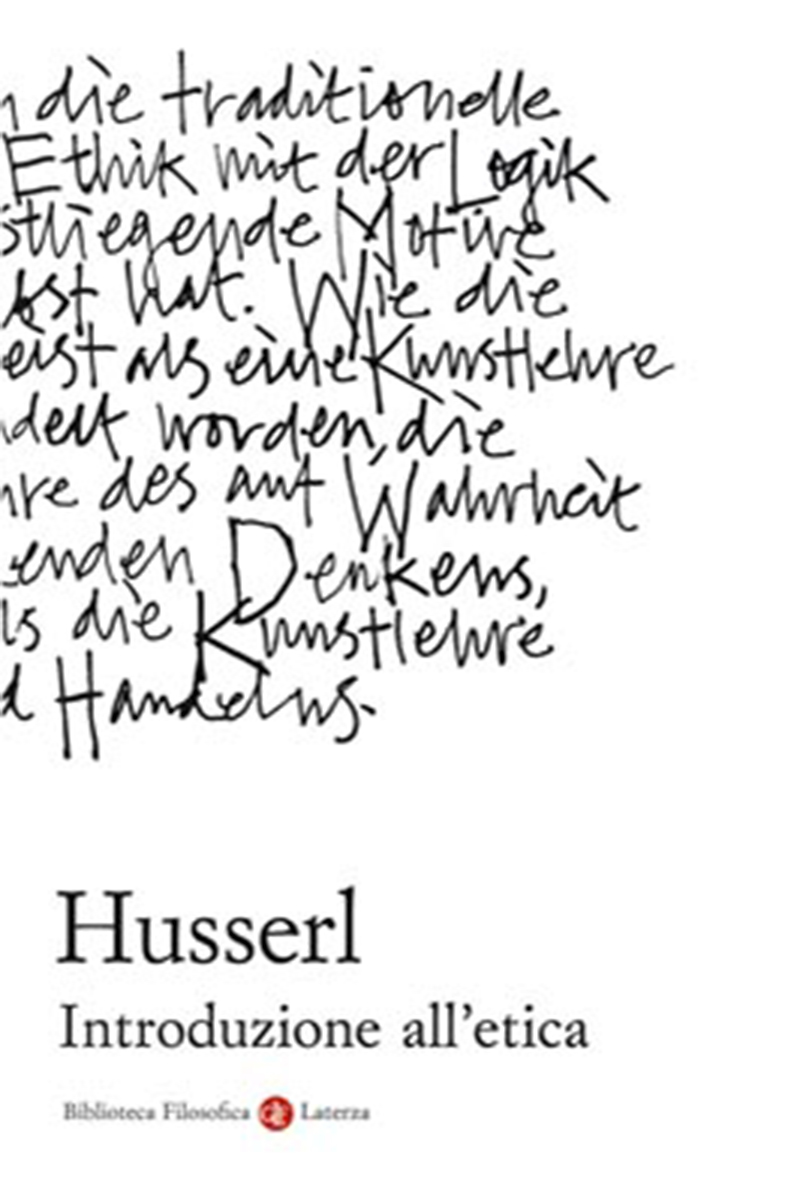 die traditionelle
Ethik mit der Logik
stliegende Motive
sst hat. Wie die
eist als eine Kunstlehre
delt worden, die
hre des auf Wahrheit
enden Denkens,
ls die Kunstlehre
d Handelns.
Husserl
Introduzione all'etica
Biblioteca Filosofica Laterza